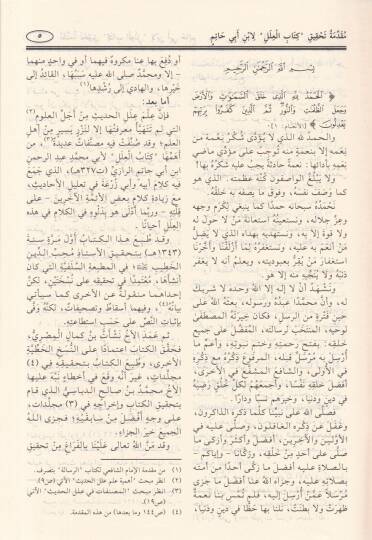 مُقَدِّمَةُ تَحْقِيقِ "كِتَابِ العِلَلِ" لِابْنِ أَبِي حَاتِمٍ
٥
بِسْمِ اللَّهِ الرَّحْمَنِ الرَّحِيمِ
﴿ الْحَمْدُ لِلَّهِ الَّذِي خَلَقَ السَّمَوَاتِ وَالْأَرْضَ
وَجَعَلَ الظُّلُمَاتِ وَالنُّورَ ثُمَّ الَّذِينَ كَفَرُوا بِرَبِّهِمْ
يَعْدِلُونَ ﴾ [الأنعام: ١].
والحمدُ لله الذي لا يُؤدَّى شُكْرُ نِعْمة من
نِعَمِهِ إلا بنعمةٍ منه تُوجِبُ على مؤدِّي ماضي
نِعَمِهِ بأدائها: نعمةً حادثةً يجبُ عليه شُكْرُهُ بها؛
ولا يَبْلُغُ الواصفون كُنْهَ عظمتِهِ، الذي هو
كما وصَفَ نفسَهُ، وفوق ما يصفه به خَلْقُهُ.
نَحمَدُهُ سبحانه حمدًا كما ينبغي لِكَرَمِ وجهِهِ
وعزِّ جلاله، ونستعينُهُ استعانةَ مَنْ لا حَوْلَ له
ولا قوة إلا به، ونستهديه بهداه الذي لا يضلُّ
من أنعَمَ به عليه، ونستغفرُهُ لِمَا أَزْلَفْنَا وأخَّرنا
استغفارَ مَنْ يُقِرُّ بعبوديتِهِ، ويعلمُ أنه لا يغفر
ذنبَهُ ولا يُنْجيه منه إلا هو.
ونَشْهَدُ أنْ لا إله إلا اللهُ وحده لا شريكَ
له، وأنَّ محمَّدًا عبدُهُ ورسولُه، بعثَهُ اللهُ على
حين فَتْرَةٍ من الرسل، فكان خِيرتَهُ المصطفَى
لوحيه، المنتخَبَ لرسالته، المفضَّلَ على جميع
خلقِهِ: بفتحِ رحمتِهِ وختمِ نبوتِهِ، وأعمِّ ما
أَرْسَلَ به مُرْسَلٌ قبله، المرفوعَ ذِكْرُهُ مع ذِكْرِهِ
في الأولى، والشافعَ المشفَّعَ في الأخرى،
أفضلَ خلقِهِ نفسًا، وأجمعَهُمْ لكلِّ خُلُقٍ رضِيَهُ
في دينٍ ودنيا، وخيرَهم نسبًا ودارًا.
فصلَّى الله على نبيِّنا كلَّما ذكَرَهُ الذاكرون،
وغَفَلَ عن ذِكْرِهِ الغافلون، وصلَّى عليه في
الأوَّلين والآخِرين، أفضلَ وأكثرَ وأزكى ما
صلَّى على أحدٍ مِنْ خَلْقه، وزكَّانا - وإياكم -
بالصلاة عليه أفضلَ ما زكَّى أحدًا من أمته
بصلاتِهِ عليه، وجزاه اللهُ عنا أفضلَ ما جزى
مُرْسَلًا عمَّنْ أُرْسِلَ إليه، فلم تُمْسِ بنا نعمةٌ
ظهرَتْ ولا بطَنَتْ، نلنا بها حظًّا في دينٍ ودنيا،
أو دُفِعَ بها عنا مكروهٌ فيهما أو في واحدٍ منهما
- إلا ومحمَّدٌ صلى الله عليه سبَبُهَا، القائدُ إلى
خَيْرِها، والهادي إلى رُشْدِها(١).
أما بعد:
فإنَّ عِلْمَ عِلَلِ الحديثِ مِنْ أجلِّ العلوم(٢)
التي لم تَتَهَيَّأْ معرفتُهَا إلا لنَزْرٍ يسيرٍ مِنْ أهلِ
العِلْم، وقد صُنِّفَتْ فيه مصنَّفاتٌ عديدة(٣)، من
أهمِّها "كتابُ العِلَلِ" لأبي محمَّدٍ عبدِ الرحمنِ
ابنِ أبي حاتمٍ الرازيِّ (ت٣٢٧هـ)، الذي جمَعَ
فيه كلامَ أبيه وأبي زُرْعَةَ في تعليلِ الأحاديث،
مع زيادةِ كلامِ بعضِ الأئمَّةِ الآخَرين - على
قِلَّتِهِ - وربَّما أدلى هو بدَلْوِهِ في الكلام في هذه
العِلَلِ أحيانًا.
وقد طُبِعَ هذا الكتابُ أوَّلَ مَرَّةٍ سنة
(١٣٤٣هـ) بتحقيقِ الأستاذِ مُحِبِّ الدينِ
الخطيبِ، في المطبعة السَّلَفيَّةِ التي كان
أنشأها، مُعْتَمِدًا في تحقيقه على نُسْخَتَيْنِ، لكنَّ
إحداهما منقولةٌ عن الأخرى كما سيأتي
بيانُهُ(٤)، وفيهما أسقاطٌ وتصحيفات، لكنَّه وفَّى
بإثباتِ النَّصِّ على حَسَبِ استطاعتِهِ.
ثم عمَدَ الأخ نَشْأَتُ بنُ كمالٍ المِصْريُّ،
فحقَّق الكتابَ اعتمادًا على النُّسَخِ الخَطِّيَّةِ
الأخرى، وطُبِعَ الكتابُ بتحقيقِهِ في (٤)
مجلَّدات، غيرَ أنَّه وقَعَ في أخطاءٍ نَبَّهَ عليها
الأخُ محمَّدُ بنُ صالحٍ الدباسيُّ الذي قام
بتحقيقِ الكتابِ وإخراجِهِ في (٣) مجلَّدات،
على وجهٍ أفضلَ مِنْ سابقَيْهِ؛ فجزى اللهُ
الجميعَ خيرَ الجزاء.
وقد مَنَّ اللهُ تعالى علَيْنا بالفراغِ مِنْ تحقيقِ
(١) من مقدمة الإمام الشافعي لكتاب "الرسالة" بتصرف.
(٢) انظر مبحث "أهمية علم علل الحديث" الآتي (ص٩).
(٣) انظر مبحث "المصنفات في علل الحديث" الآتي
(ص١٩).
(٤) (ص١٤٤ وما بعدها) من هذه المقدمة.